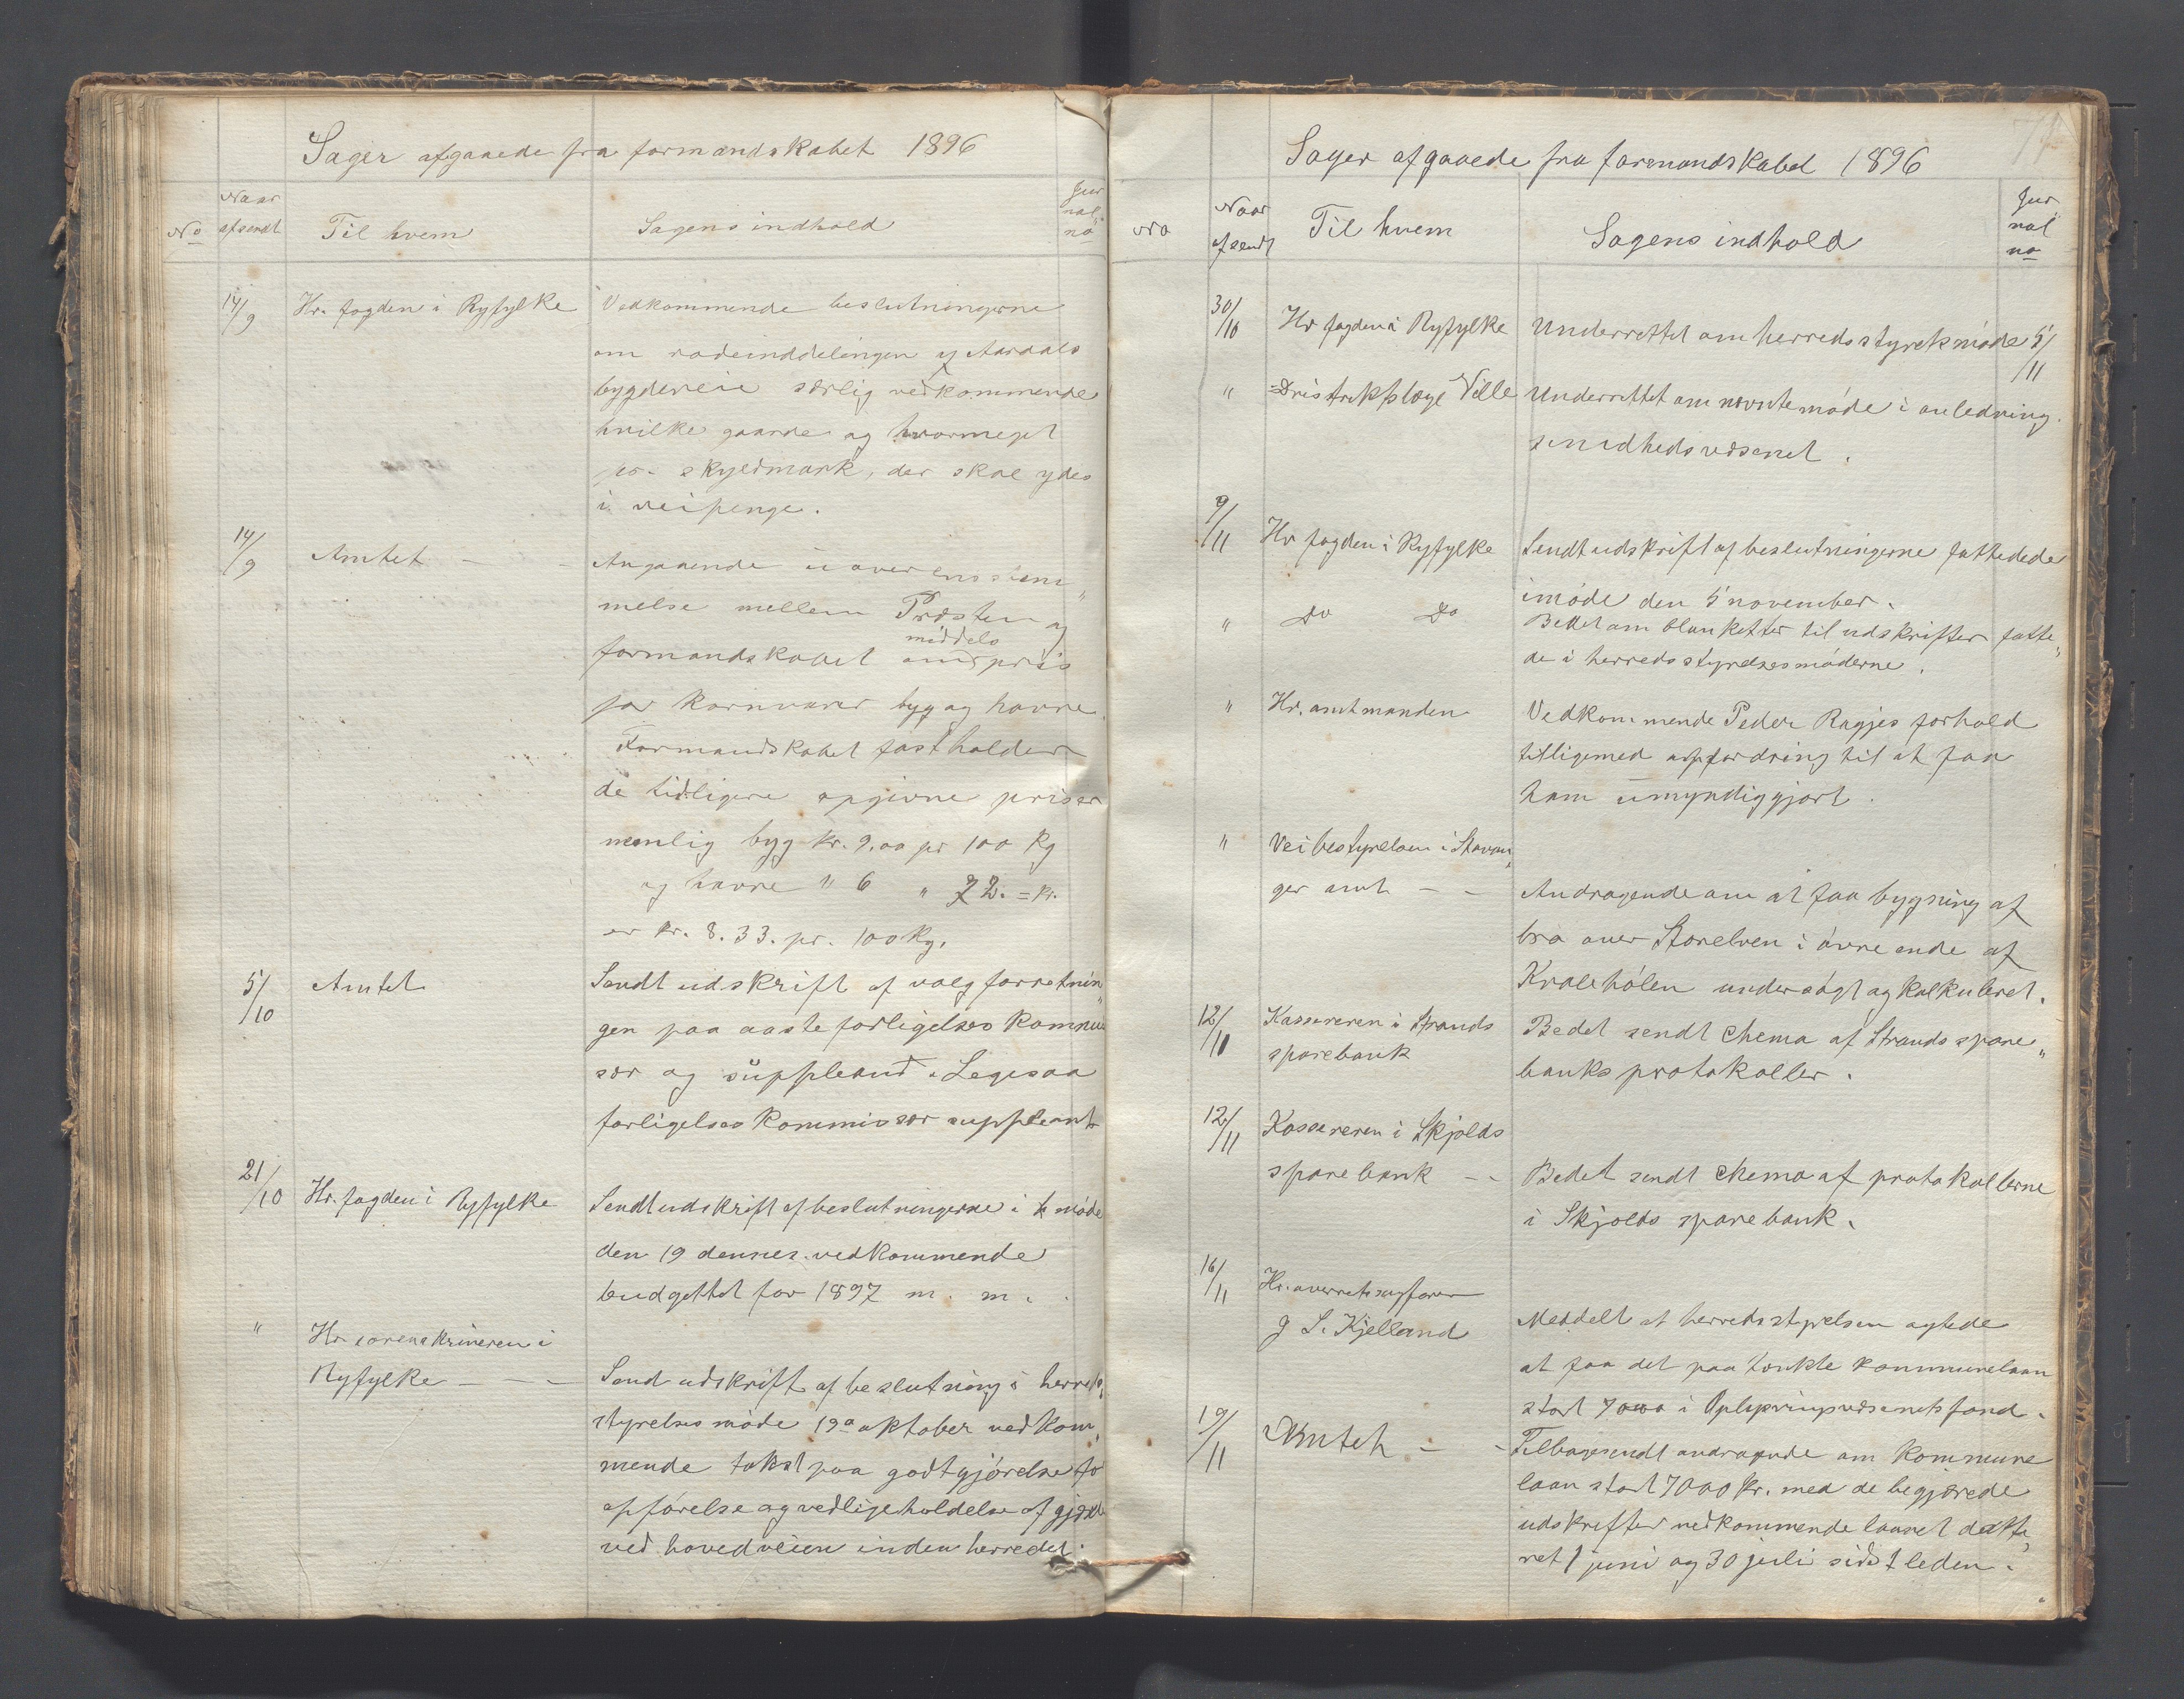 Sager afgaaede fra formandskabet 1896
No
Naar
afsendt
Til hvem
Sagens indhold
Jur
nal
no
14/9 Hr. fogden i Ryfylke Vedkommende beslutningerne
om rodeinddelingen af Aardals
bygdeveie særlig vedkommende
hvilke gaarde og hvormeget
pr. skyldmark, der skal ydes
i veipenge.
14/9 Amtet - - Angaaende uoverensstem„
melse mellem Præsten og
formandskabet om middels pris
for kornvarer byg og havre.
Formandskabet fastholder
de tidligere opgivne priser
nemlig byg kr. 9,00 pr 100 kg
og havre " 6 " 72. = kr.
er kr. 8.33. pr. 100 kg.
5/10 Amtet Sendt udskrift af valgforretnin„
gen paa aaste forligelses kommis
sær og suppleant. Legesaa
forligelses kommissær suppleant
21/10 Hr. fogden i Ryfylke Sendt udskrift af beslutningerne i møde
den 19 dennes. vedkommende
budgettet for 1897 m. m.
" Hr sorenskriveren i
Ryfylke - - - Send udskrift af beslutning i herreds„
styrelses møde 19a oktober vedkom„
mende takst paa godtgjørelse for
opførelse og vedligeholdelse af gjærde
ved hovedveien inden herredet.
Sager afgaaede fra formandskabet 1896
No
Naar
afsendt
Til hvem
Sagens indhold
Jur
nal
no
30/10 Hr fogden i Ryfylke Underrettet om herredsstyrets møde 5/11
" Distriktslæge Ville Underrettet om nævnte møde i anledning
sundhedsvæsenet.
9/11 Hr fogden i Ryfylke Sendt udskrift af beslutningerne fattedede
i møde den 5 november.
" Do Do Bedet om blanketter til udskrifter fatte„
de i herredsstyrelsesmøderne.
" Hr. amtmanden Vedkommende Peder Ragjes forhold
tilligemed opfordring til at faa
ham umyndiggjort.
" Veibestyrelsen i Stavan„
ger amt - - Andragende om at faa bygning af
bro over Storelven i øvre ende af
Kralehølen undersøgt og kalkuleret.
12/10 Kassereren i Strands Bedet sendt chema af Strands spare„
sparebank banks protokoller.
12/11 Kassereren i Skjolds
sparebank - - Bedet sendt chema af protokollerne
i Skjolds sparebank.
16/11 Hr. overretssagfører
g S. Kjelland Meddelt at herredsstyrelsen agtede
at faa det paa tænkte kommunelaan
stort 7000 i Oplysningsvæsenets fond.
19/11 Amtet - - Tilbagesendt andragende om kommune
laan stort 7000 kr. med de begjærede
udskrifter vedkommende laanet datte„
ret 1 juni og 30 juli sidstleden.